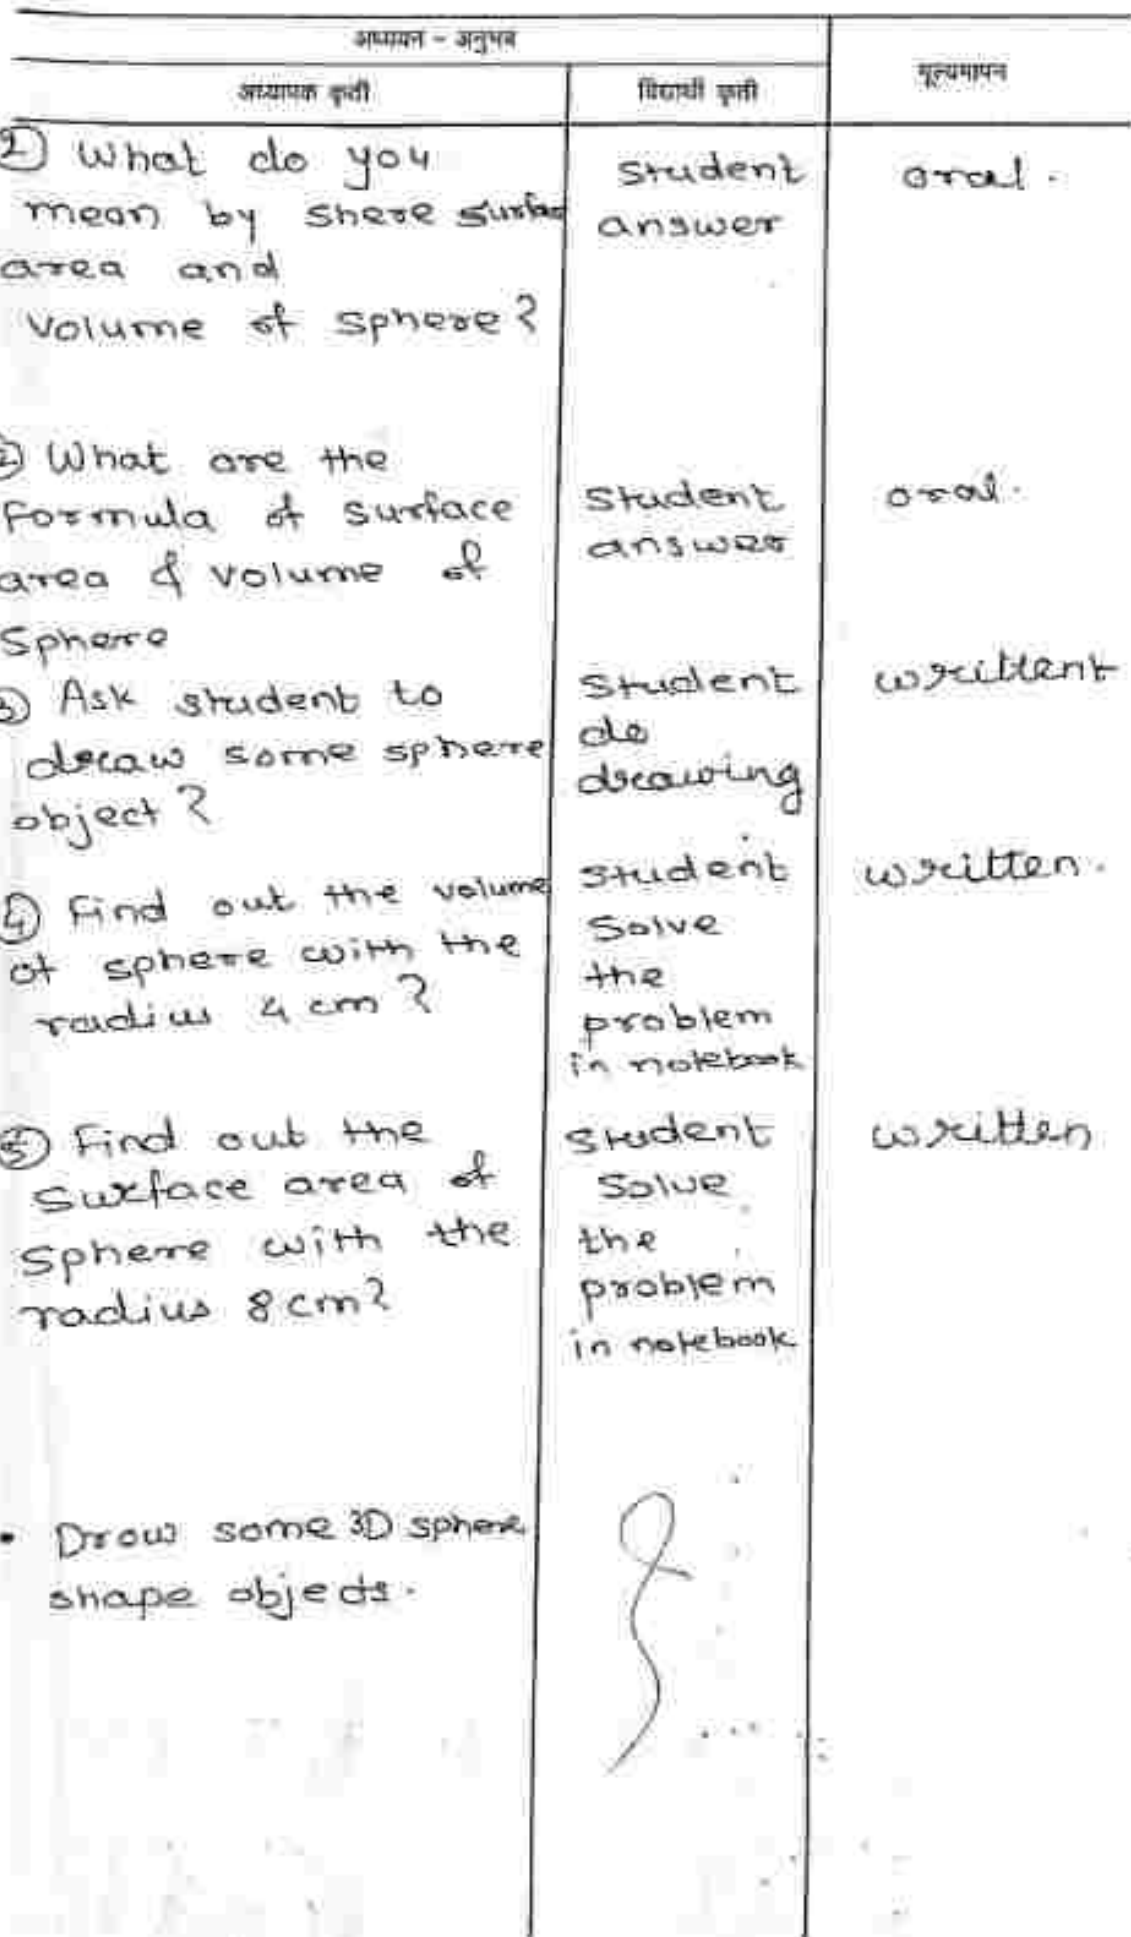 अध्ययन - अनुभव
अध्यापक कृती विद्यार्थी कृती मूल्यमापन
① What do you
mean by shere surface
area and
volume of sphere?
student
answer
oral.
② What are the
Formula of surface
area & volume of
Sphere
student
answer
oral.
③ Ask student to
draw some sphere
object?
student
do
drawing
writtent
④ Find out the volume
of sphere with the
radius 4 cm?
student
Solve
the
problem
in notebook
written.
⑤ Find out the
Surface area of
Sphere with the
radius 8 cm?
student
Solve
the
problem
in notebook
written
• Drow some 3D sphere
shape objects.